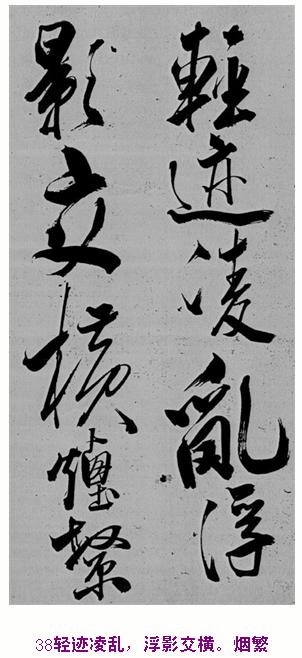 輕迹凌亂浮
影交横煙繁
38轻迹凌乱，浮影交横。烟繁